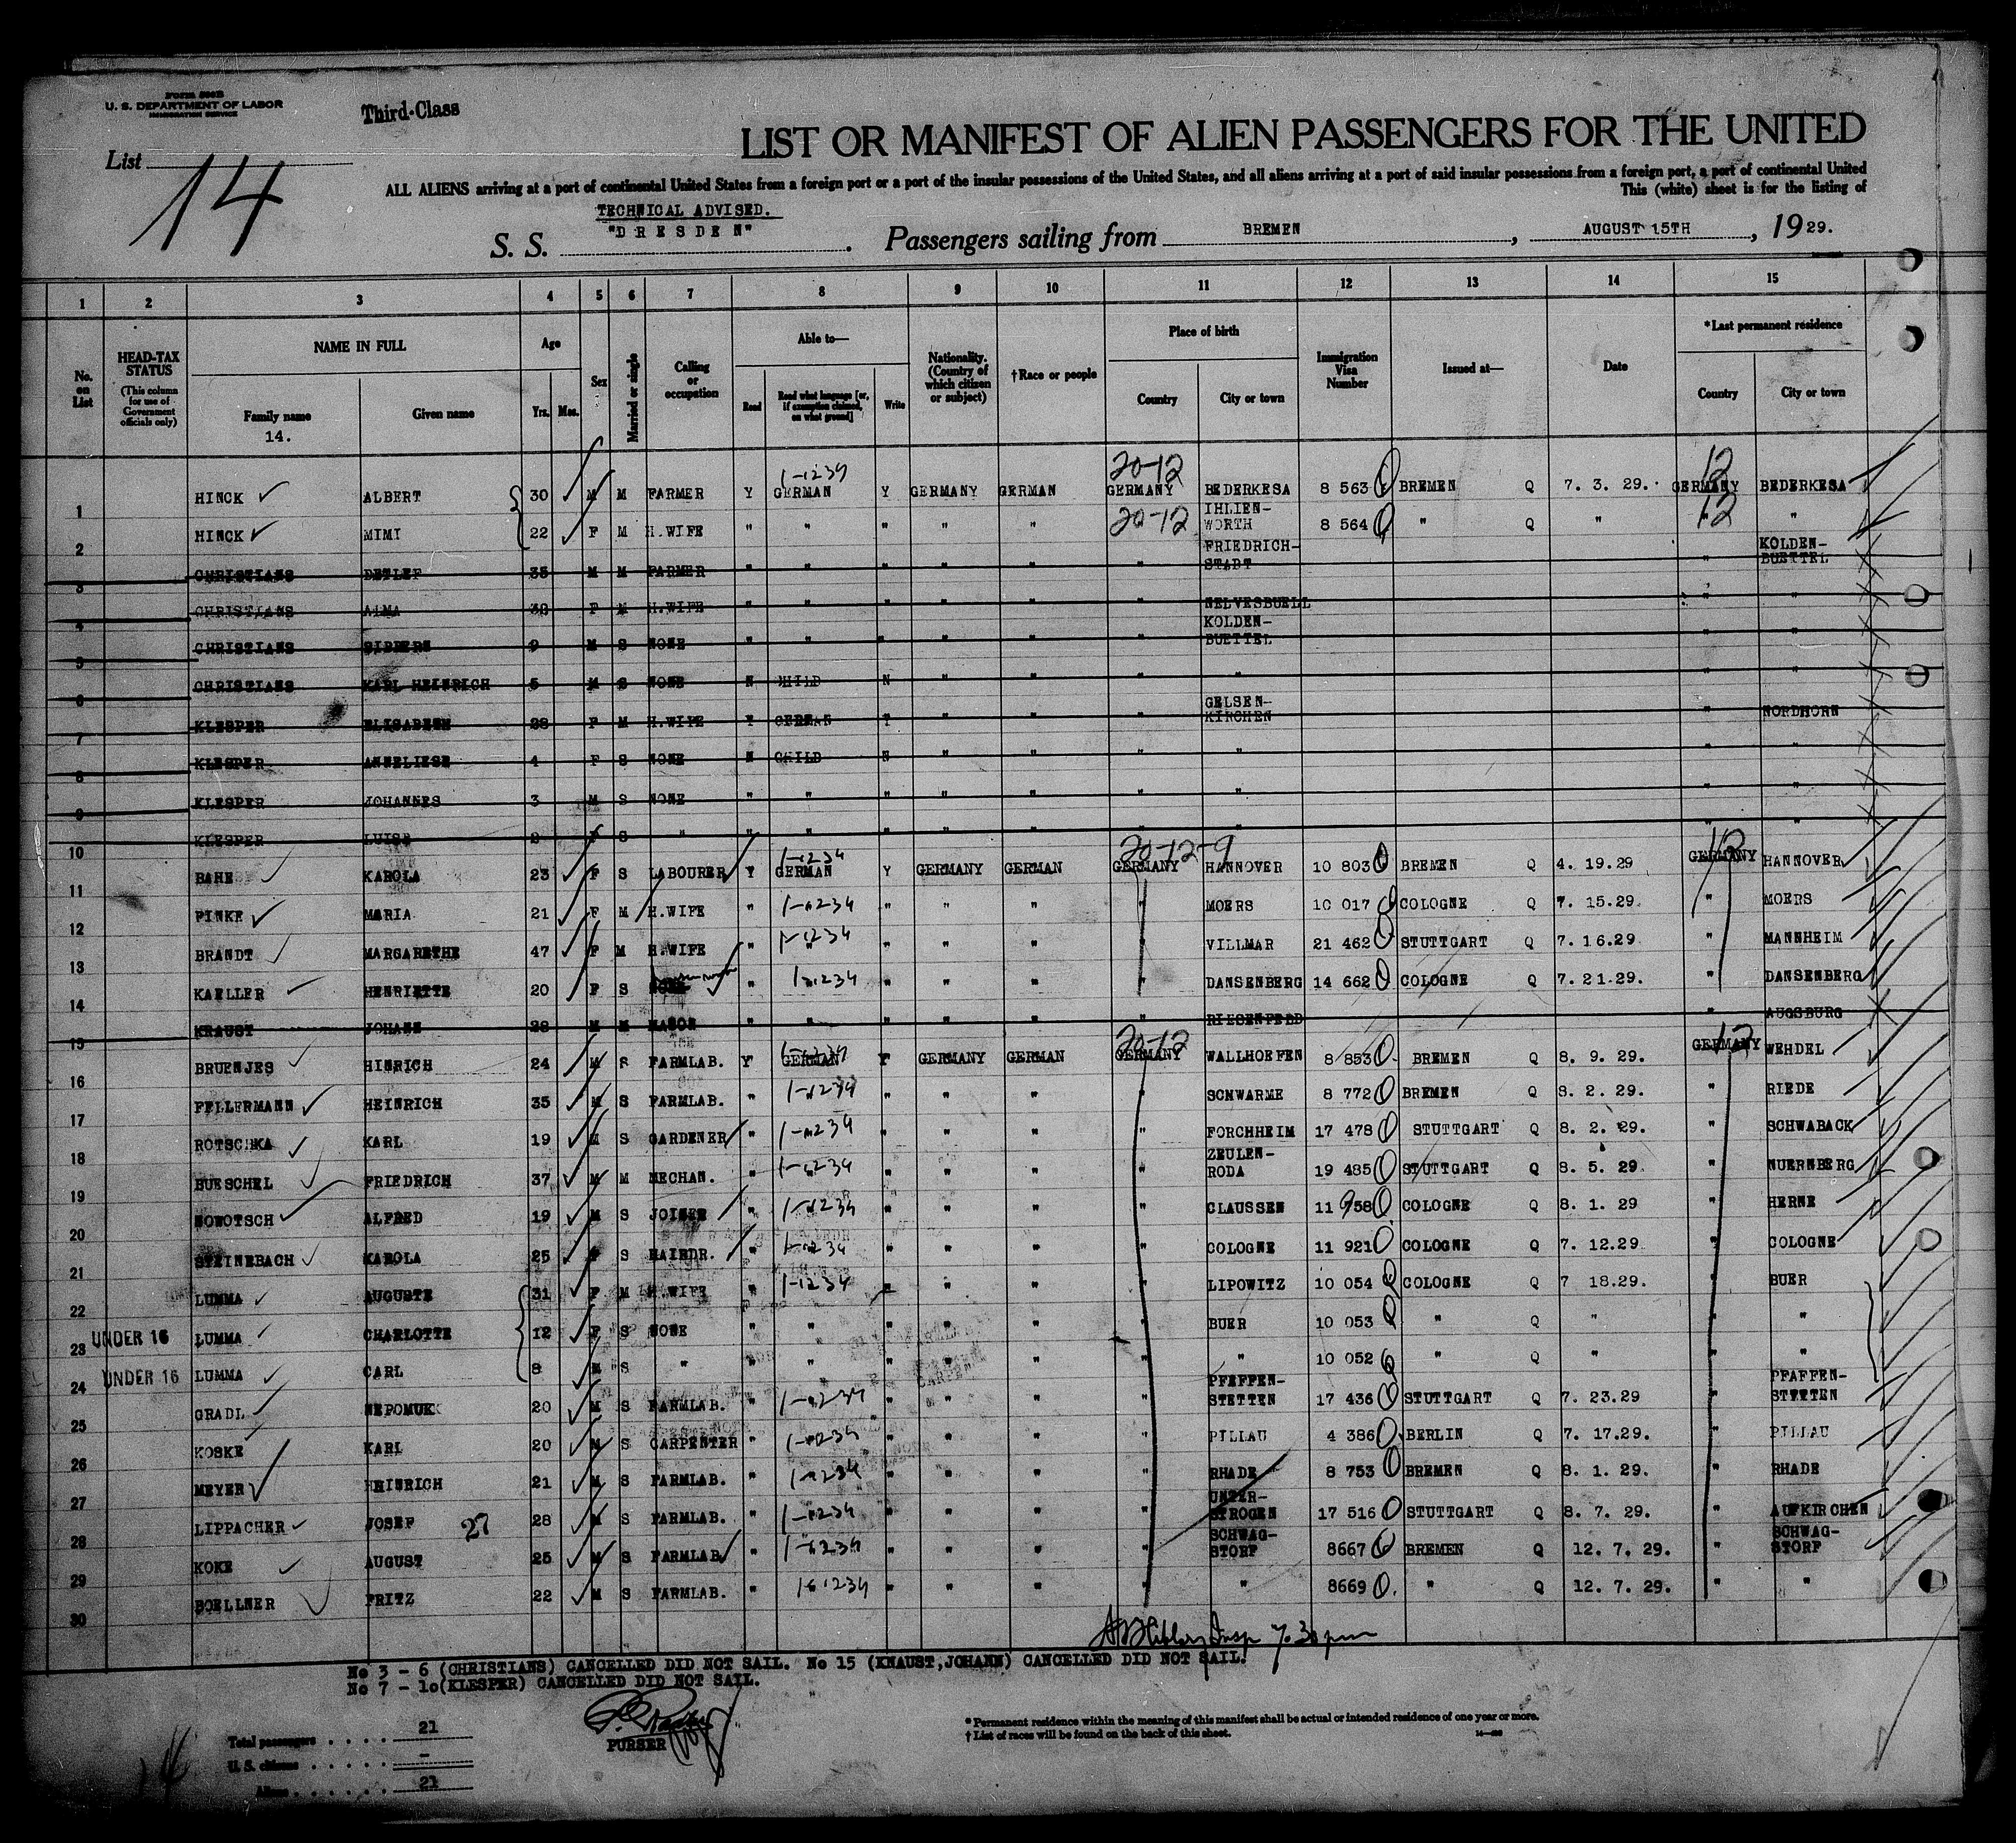 Form 500B
U. S. DEPARTMENT OF LABOR
IMMIGRATION SERVICE
Third-Class
List 14
LIST OR MANIFEST OF ALIEN PASSENGERS FOR THE UNITED
ALL ALIENS arriving at a port of continental United States from a foreign port or a port of the insular possessions of the United States, and all aliens arriving at a port of said insular possessions from a foreign port, a port of continental United
This (white) sheet is for the listing of
TECHNICAL ADVISED.
S. S. "DRESDEN". Passengers sailing from BREMEN, AUGUST 15TH, 1929.
1 2 3 4 5 6 7 8 9 10 11 12 13 14 15
No. on List
HEAD-TAX STATUS (This column for use of Government officials only)
NAME IN FULL
Family name
Given name
14.
Age
Yrs. Mos.
Sex
Married or single
Calling or occupation
Able to—
Read
Read what language [or, if exemption claimed, on what ground]
Write
Nationality. (Country of which citizen or subject)
†Race or people
Place of birth
Country
City or town
Immigration Visa Number
Issued at—
Date
*Last permanent residence
Country
City or town
20-12 12
1-1234
1 HINCK ALBERT 30 M M FARMER Y GERMAN Y GERMANY GERMAN GERMANY BEDERKESA 8 563 BREMEN Q 7. 3. 29. GERMANY BEDERKESA
2 HINCK MIMI 22 F M H.WIFE " " " " " 20-12 IHLIEN-WORTH 8 564 " Q " 12 "
3 CHRISTIANS DETLEF 35 M M FARMER " " " " " " FRIEDRICH-STADT " KOLDEN-BUETTEL
4 CHRISTIANS ALMA 38 F M H.WIFE " " " " " " NELVESBUELL " "
5 CHRISTIANS SIBBERN 9 M S NONE " " " " " " KOLDEN-BUETTEL " "
6 CHRISTIANS KARL HEINRICH 5 M S NONE N CHILD N " " " " " "
7 KLESPER ELISABETH 28 F M H.WIFE Y GERMAN Y " " " GELSEN-KIRCHEN " NORDHORN
8 KLESPER ANNELIESE 4 F S NONE N CHILD N " " " " " "
9 KLESPER JOHANNES 3 M S NONE " " " " " " " " "
10 KLESPER LUISE F S " " " " " " " " " "
20-12-9 12
1-1234
11 BAHE KAROLA 23 F S LABOURER Y GERMAN Y GERMANY GERMAN GERMANY HANNOVER 10 803 BREMEN Q 4. 19.29 GERMANY HANNOVER
12 FINKE MARIA 21 F M H.WIFE " 1-1234 " " " " MOERS 10 017 COLOGNE Q 7. 15.29. " MOERS
13 BRANDT MARGARETHE 47 F M H.WIFE " 1-1234 " " " " VILLMAR 21 462 STUTTGART Q 7. 16.29 " MANNHEIM
14 KAELLER HENRIETTE 20 F S NONE " 1-1234 " " " " DANSENBERG 14 662 COLOGNE Q 7. 21.29. " DANSENBERG
15 KNAUST JOHANN 28 M M MASON " " " " " " RIESENFELD " AUGSBURG
20-12 12
1-1234
16 BRUENJES HINRICH 24 M S FARMLAB. Y GERMAN Y GERMANY GERMAN GERMANY WALLHOEFEN 8 853 BREMEN Q 8. 9. 29. GERMANY WEHDEL
17 FELLERMANN HEINRICH 35 M S FARMLAB. " 1-1234 " " " " SCHWARME 8 772 BREMEN Q 8. 2. 29. " RIEDE
18 ROTSCHKA KARL 19 M S GARDENER " 1-1234 " " " " FORCHHEIM 17 478 STUTTGART Q 8. 2. 29. " SCHWABACK
19 BUESCHEL FRIEDRICH 37 M M MECHAN. " 1-1234 " " " " ZEULEN-RODA 19 485 STUTTGART Q 8. 5. 29. " NUERNBERG
20 NOWOTSCH ALFRED 19 M S JOINER " 1-1234 " " " " CLAUSSEN 11 958 COLOGNE Q 8. 1. 29 " HERNE
21 STEINEBACH KAROLA 25 F S HAIRDR. " 1-1234 " " " " COLOGNE 11 921 COLOGNE Q 7. 12.29 " COLOGNE
22 LUMMA AUGUSTE 31 F M H.WIFE " 1-1234 " " " " LIPOWITZ 10 054 COLOGNE Q 7 18.29. " BUER
UNDER 16 23 LUMMA CHARLOTTE 12 F S NONE " " " " " " BUER 10 053 " Q " " "
UNDER 16 24 LUMMA CARL 8 M S " " " " " " " " 10 052 " Q " " "
25 GRADL NEPOMUK 20 M S FARMLAB. " 1-1234 " " " " PFEFFEN-STETTEN 17 436 STUTTGART Q 7. 23.29 " PFAFFEN-STETTEN
26 KOSKE KARL 20 M S CARPENTER " 1-1234 " " " " PILLAU 4 386 BERLIN Q 7. 17.29. " PILLAU
27 MEYER HEINRICH 21 M S FARMLAB. " 1-1234 " " " " RHADE 8 753 BREMEN Q 8. 1. 29. " RHADE
28 LIPPACHER JOSEF 27 28 M S FARMLAB. " 1-1234 " " " " UNTER-STROGEN 17 516 STUTTGART Q 8. 7. 29. " AUFKIRCHEN
29 KOKE AUGUST 25 M S FARMLAB " 1-1234 " " " " SCHWAG-STORF 8667 BREMEN Q 12. 7. 29. " SCHWAG-STORF
30 BOELLNER FRITZ 22 M S FARMLAB. " 1-1234 " " " " " 8669 " Q 12. 7. 29. " "
Insp 7.30 pm
No 3 - 6 (CHRISTIANS) CANCELLED DID NOT SAIL. No 15 (KNAUST,JOHANN) CANCELLED DID NOT SAIL.
No 7 - 10(KLESPER) CANCELLED DID NOT SAIL.
PURSER
Total passengers . . . . 21
U. S. citizens . . . . . -
Aliens . . . . . . 21
* Permanent residence within the meaning of this manifest shall be actual or intended residence of one year or more.
† List of races will be found on the back of this sheet.